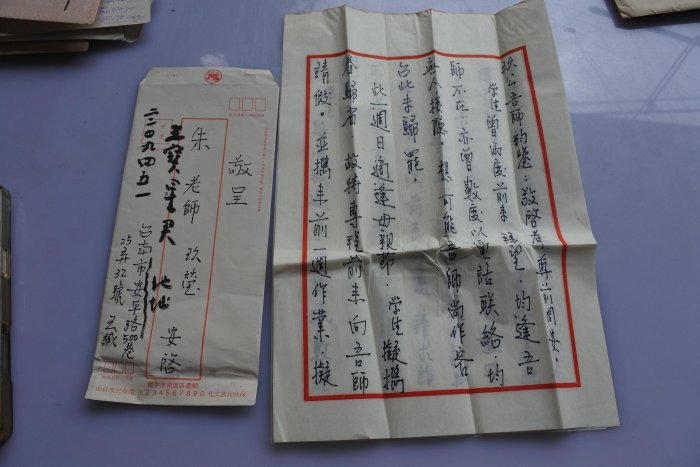 敬呈
朱老師玖瑩 安啓
王寶星男 地址
二二0九四五一
台南市安平路500巷
25弄32號 王緘
1234567890
玖公吾師鈞鑒:敬啓者,尊前問安:
學生曾兩度前來 望,均逢吾
師不在,亦曾數度以電話聯絡,均
無人接聽。想可能吾師尚作客
台北未歸罷。
正此一週日適逢母親節,學生擬攜
眷歸省 故特專程前來向吾師
請假。並攜來前一週作業,擬